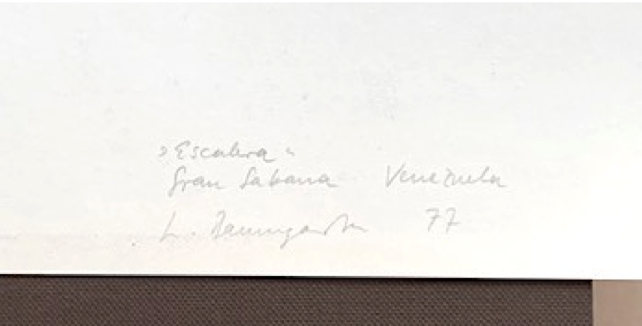 »Escalera«
Gran Sabana Venezuela
L. Baumgarten 77